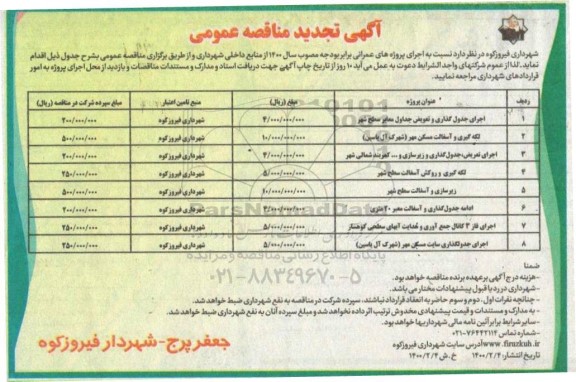 آگهی تجدید مناقصه عمومی
شهرداری فیروزکوه در نظر دارد نسبت به اجرای پروژه های عمرانی برابر بودجه مصوب سال ۱۴۰۰ از منابع داخلی شهرداری و از طریق برگزاری مناقصه عمومی بشرح جدول ذیل اقدام
نماید. لذا از عموم شرکتهای واجد الشرایط دعوت به عمل می آید ۱۰ روز از تاریخ چاپ آگهی جهت دریافت اسناد و مدارک و مستندات مناقصات و بازدید از محل اجرای پروژه به امور
قراردادهای شهرداری مراجعه نمایید.
ردیف عنوان پروژه مبلغ (ریال) منبع تامین اعتبار مبلغ سپرده شرکت در مناقصه (ریال)
۱ اجرای جداول گذاری و تعویض جداول معابر سطح شهر ۴/۰۰۰/۰۰۰/۰۰۰ شهرداری فیروزکوه ۲۰۰/۰۰۰/۰۰۰
۲ لکه گیری و آسفالت مسکن مهر (شهرک آل یاسین) ۱۰/۰۰۰/۰۰۰/۰۰۰ شهرداری فیروزکوه ۵۰۰/۰۰۰/۰۰۰
۳ اجرای تعویض جدول گذاری و زیرسازی و ... کمربند شمالی شهر ۴/۰۰۰/۰۰۰/۰۰۰ شهرداری فیروزکوه ۲۰۰/۰۰۰/۰۰۰
۴ لکه گیری و روکش آسفالت سطح شهر ۵/۰۰۰/۰۰۰/۰۰۰ شهرداری فیروزکوه ۲۵۰/۰۰۰/۰۰۰
۵ زیرسازی و آسفالت سطح شهر ۱۰/۰۰۰/۰۰۰/۰۰۰ شهرداری فیروزکوه ۵۰۰/۰۰۰/۰۰۰
۶ ادامه جدول گذاری و آسفالت معبر ۲۰ متری شهرداری فیروزکوه ۲۰۰/۰۰۰/۰۰۰
۷ اجرای فاز ۳ کانال جمع آوری و هدایت آبهای سطحی کوهسار ۵/۰۰۰/۰۰۰/۰۰۰ شهرداری فیروزکوه ۲۵۰/۰۰۰/۰۰۰
۸ اجرای جدولگذاری سایت مسکن مهر (شهرک آل یاسین) ۵/۰۰۰/۰۰۰/۰۰۰ شهرداری فیروزکوه ۲۵۰/۰۰۰/۰۰۰
ParsNamadData
پایگاه اطلاع رسانی مناقصه و مزایده
۰۲۱-۸۸۳۴۹۶۷۰-۵
ضمنا
-هزینه درج آگهی بر عهده برنده مناقصه خواهد بود.
-شهرداری در رد یا قبول پیشنهادات مختار می باشد.
-چنانچه نفرات اول، دوم و سوم حاضر به انعقاد قرارداد نباشند، سپرده شرکت در مناقصه به نفع شهرداری ضبط خواهد شد.
-به مدارک و مستندات و قیمت پیشنهادی مخدوش ترتیب اثر داده نخواهد شد و مبلغ سپرده آنان به نفع شهرداری ضبط خواهد شد.
-سایر شرایط برابر آئین نامه مالی شهرداریها خواهد بود.
-شماره تماس ۷۶۴۴۲۱۱۲-۰۲۱
www.firuzkuh.ir آدرس سایت شهرداری فیروزکوه
تاریخ انتشار: ۱۴۰۰/۲/۴ خ ش ۱۴۰۰/۲/۴
جعفر پرج - شهردار فیروزکوه